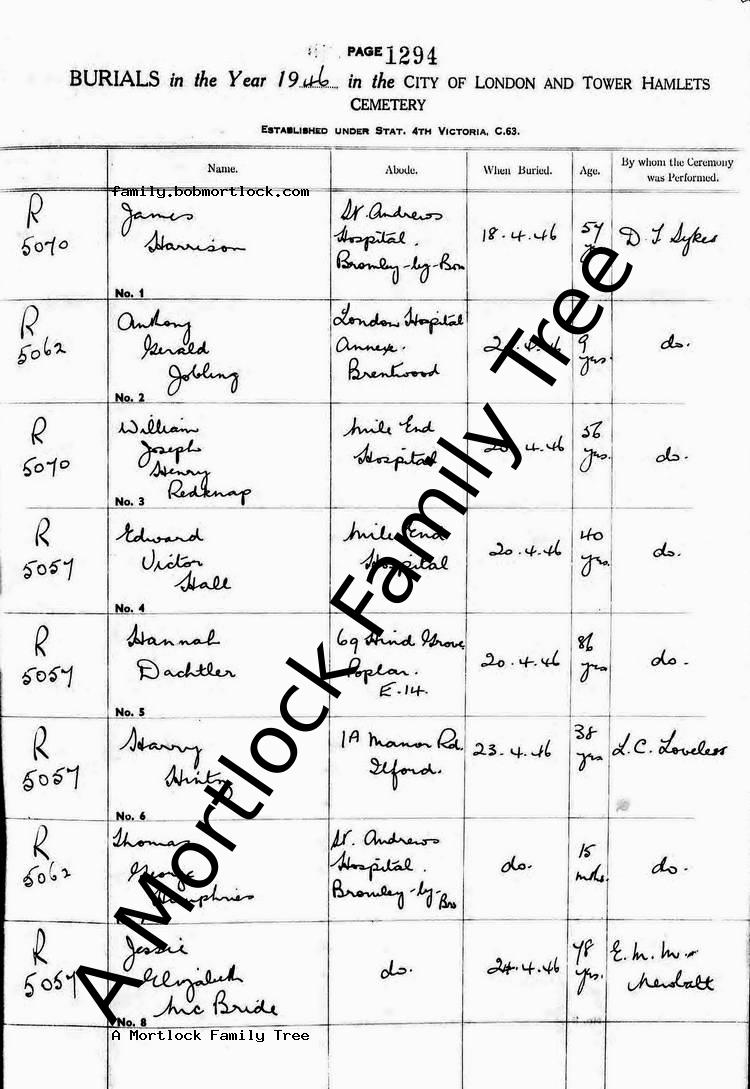 PAGE 1294
BURIALS in the Year 1946 in the CITY OF LONDON AND TOWER HAMLETS
CEMETERY
ESTABLISHED UNDER STAT. 4TH VICTORIA, C.63.
Name. Abode. When Buried. Age. By whom the Ceremony
was Performed.
family.bobmortlock.com
R
5070
James
Harrison
No. 1
St. Andrews
Hospital.
Bromley-by-Bow
18.4.46
57
D. T. Sykes
R
5062
Anthony
Gerald
Jobling
No. 2
London Hospital
Annexe.
Brentwood
4.46
9
yrs.
do.
R
5070
William
Joseph
Henry
Redknap
No. 3
Mile End
Hospital
20.4.46
56
yrs.
do.
R
5057
Edward
Victor
Hall
No. 4
Mile End
Hospital
20.4.46
40
yrs.
do.
R
5057
Hannah
Dachtler
No. 5
69 Hind Grove
Poplar.
E.14.
20.4.46
86
yrs
do.
R
5057
Harry
No. 6
1A Manor Rd.
Ilford.
23.4.46
38
yrs
L. C. Loveless
R
5062
Thomas
George
Humphries
St. Andrews
Hospital.
Bromley-by-Bow
do.
15
mths.
do.
R
5057
Jessie
Elizabeth
McBride
No. 8
do.
24.4.46
78
yrs.
E. M. M.
A Mortlock Family Tree
A Mortlock Family Tree